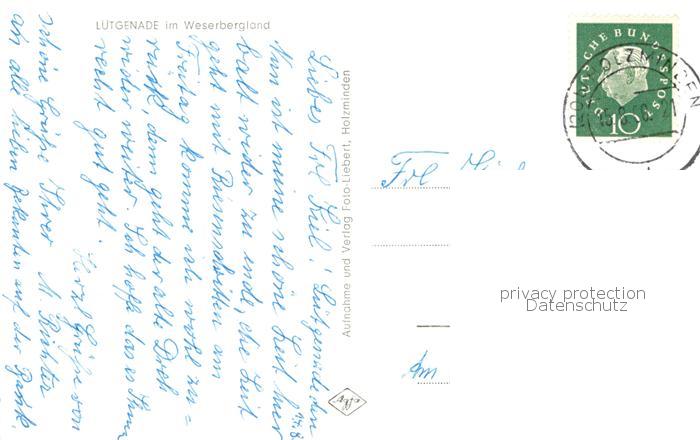 LÜTGENADE im Weserbergland
Liebes Frl Kiel! Lütgenade den
Nun ist meine schöne Zeit hier
balt wider zu ende, die Zeit
geht mit Riesenschritten am
Freitag komme ich wohl zu=
rück, dann geht der alte Dreh
wider weiter. Ich hoffe das es Ihnen
recht gut geht.
Herzl Grüße von
Ihrer M. Richter
schöne Grüße
an alle lieben Bekannten auf der Bank.
Aufnahme und Verlag Foto-Liebert, Holzminden
DEUTSCHE BUNDESPOST
10
Frl
Am
privacy protection
Datenschutz